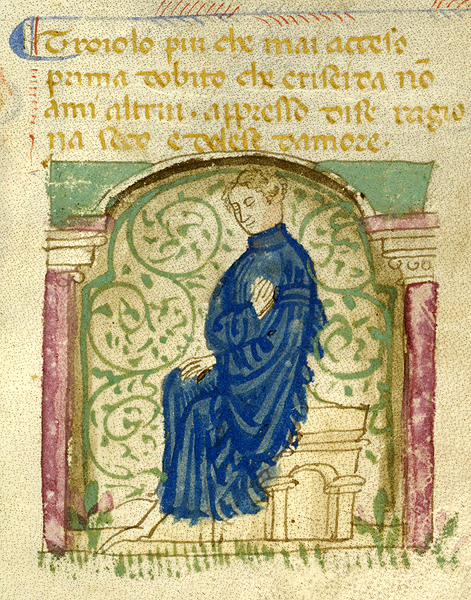 Troiolo piu che mai acceso
prima dobito che criseida nō
ami altrui · appresso dise ragio
na seco e dolesi damore ·